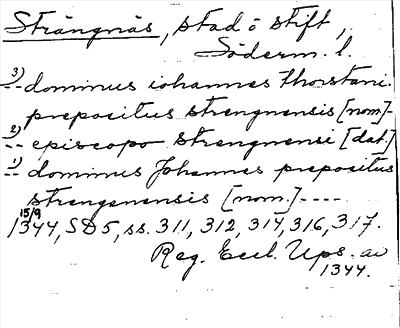 Strängnäs, stad o stift,
Söderm. l.
3) -- dominus iohannes thorstani.
prepositus strengnensis [nom.]-
2) -- episcopo strengnensi [dat.]
1) -- dominus Johannes prepositus
strengenensis [nom.] ----
15/9 1344, SD5, ss. 311, 312, 314, 316, 317.
Reg. Eccl. Ups. av
1344.